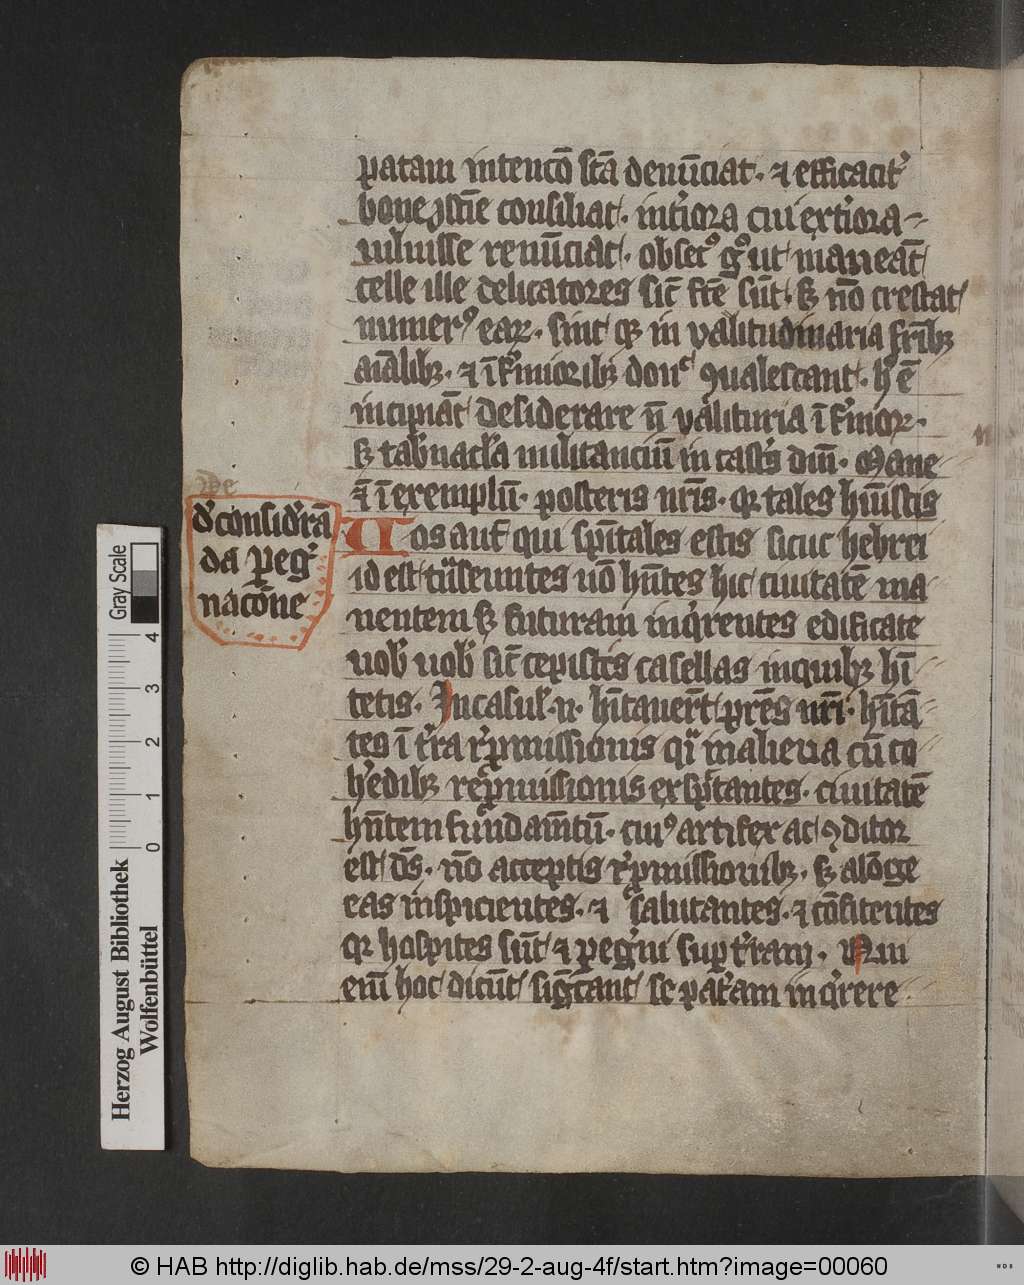 patam intencō stā denūciat · ⁊ efficacit᷎
bone ↄscīe consiliat · int᷎iora cui ext᷎iora
uiluisse renūciat · obsecᷣ gͦ ut maneāt
celle ille delicatores sic̄ fc̄e sūt · sꝫ nō crescat
numerꝰ eaꝝ · sint qꝫ in valitudinaria frībꝫ
aīalibꝫ · ⁊ īf᷎mioribꝫ donͨ ꝯualescant · h᷎ ē
incipiāt desiderare ñ valituria īf᷎moꝝ ·
sꝫ tab᷎nac̄la militanciū in cast᷎s dñi · Mane
ī exemplū · posteris nr̄is · qꝛ tales h̄uistis
Uos aut̄ qui sp̄itales estis sicut hebrei
id est t̄nseuntes nō h̄ntes hic ciuitatē ma
nentem sꝫ futuram inq᷎rentes edificate
uob᷎ uob᷎ sic̄ cepistis casellas in quibꝫ h̄i
tetis · In casul᷎ · n · h̄itauer̄t pr̄es nr̄i · h̄itā
tes ī t᷎ra r᷎ꝓmissionis q̄i in aliena cū co
h᷎edibꝫ reꝓmissionis exsp̄tantes · ciuitatē
h̄ntem fundam̄tū · cuiꝰ artifex ac ꝯditor
est d̄s · nō acceptis r᷎ꝓmissionibꝫ · sꝫ alōge
eas inspicientes · ⁊ salutantes · ⁊ cōfitentes
qꝛ hospites sūt ⁊ peg᷎ni sup t᷎ram · Qui
enī hoc dicūt sig̅cant se pat᷎am inq᷎rere
De
d᷎ consid᷎rā
da peg᷎
nacōne
Gray Scale
4
3
2
1
0
Herzog August Bibliothek
Wolfenbüttel
© HAB http://diglib.hab.de/mss/29-2-aug-4f/start.htm?image=00060